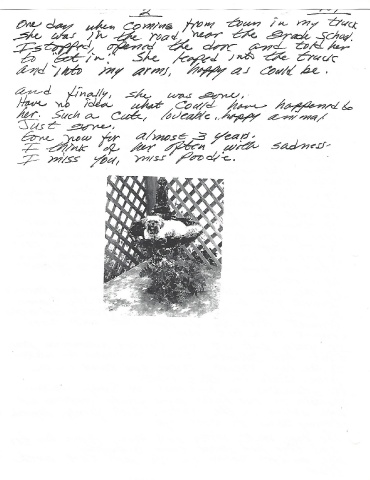 2
One day when coming from town in my truck
she was in the road, near the Grade School.
I stopped, opened the door and told her
to "Get in." She leaped into the truck
and into my arms, happy as could be.
and finally, she was gone.
Have no idea what could have happened to
her. Such a cute, loveable, happy animal
Just gone.
Gone now for almost 3 years.
I think of her often with sadness.
I miss you, miss Poodie.